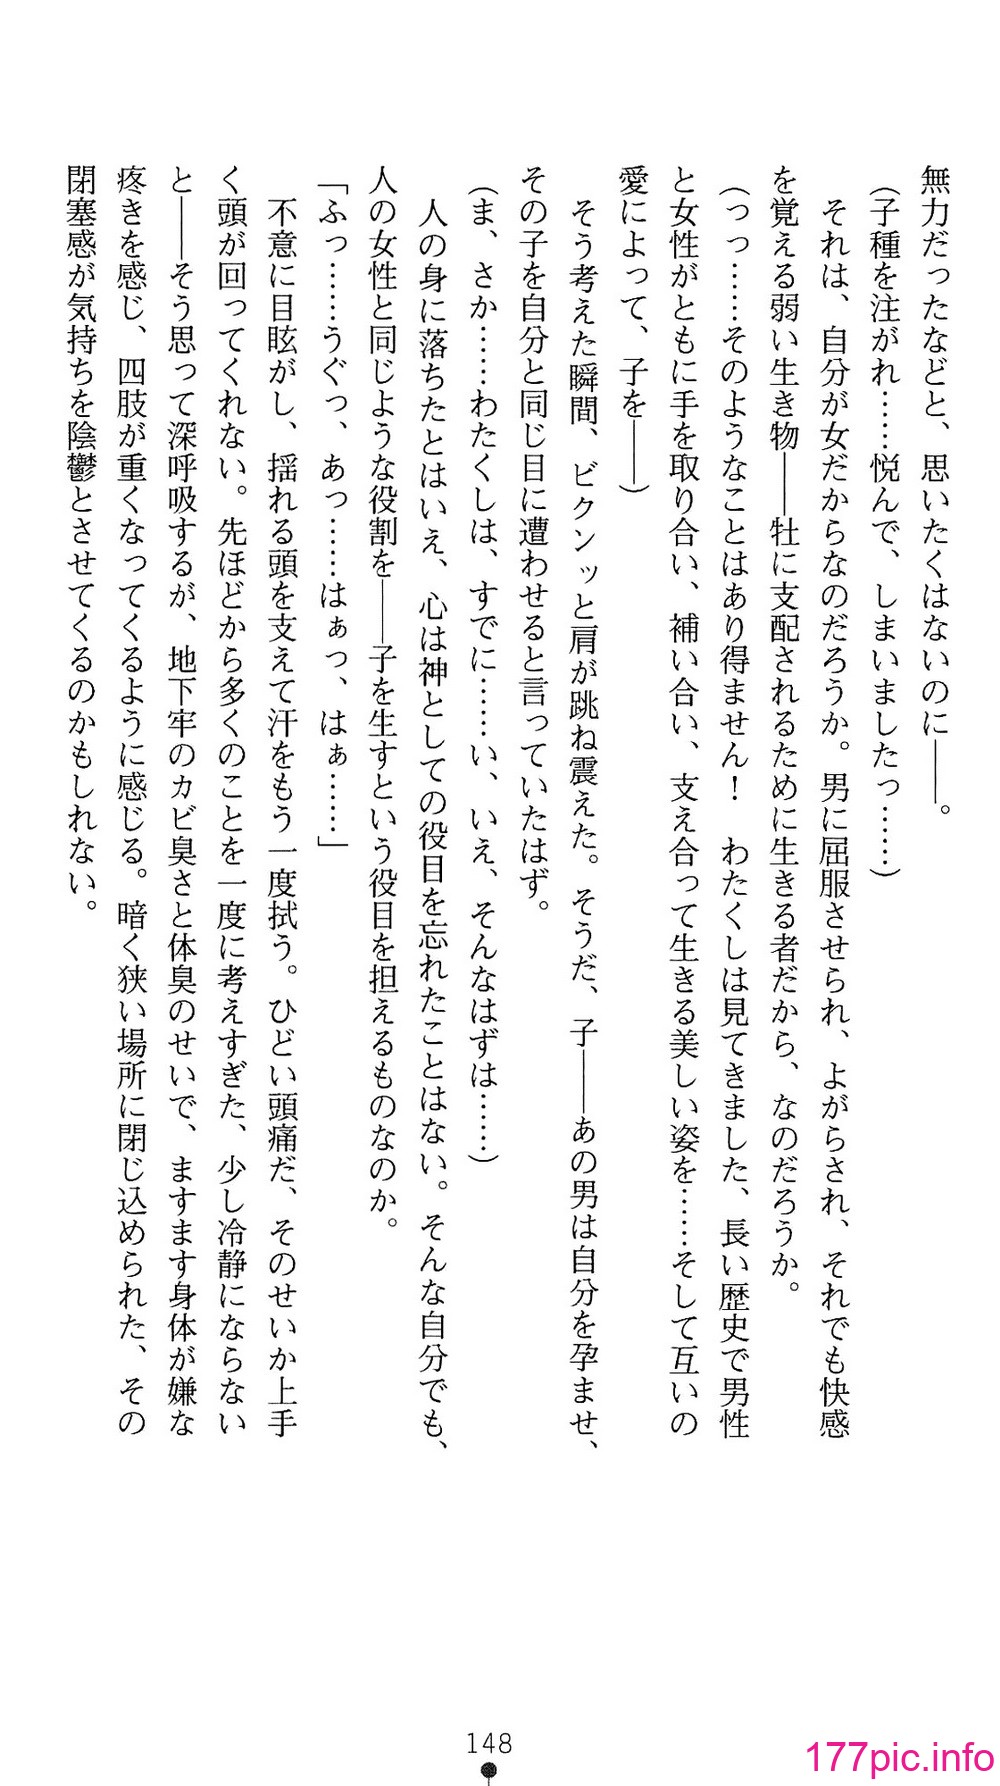 無力だったなどと、思いたくはないのに――。
（子種を注がれ……悦んで、しまいましたっ……）
　それは、自分が女だからなのだろうか。男に屈服させられ、よがらされ、それでも快感
を覚える弱い生き物――牡に支配されるために生きる者だから、なのだろうか。
（っっ……そのようなことはあり得ません！　わたくしは見てきました、長い歴史で男性
と女性がともに手を取り合い、補い合い、支え合って生きる美しい姿を……そして互いの
愛によって、子を――）
　そう考えた瞬間、ビクンッと肩が跳ね震えた。そうだ、子――あの男は自分を孕ませ、
その子を自分と同じ目に遭わせると言っていたはず。
（ま、さか……わたくしは、すでに……い、いえ、そんなはずは……）
　人の身に落ちたとはいえ、心は神としての役目を忘れたことはない。そんな自分でも、
人の女性と同じような役割を――子を生すという役目を担えるものなのか。
「ふっ……うぐっ、あっ……はぁっ、はぁ……」
　不意に目眩がし、揺れる頭を支えて汗をもう一度拭う。ひどい頭痛だ、そのせいか上手
く頭が回ってくれない。先ほどから多くのことを一度に考えすぎた、少し冷静にならない
と――そう思って深呼吸するが、地下牢のカビ臭さと体臭のせいで、ますます身体が嫌な
疼きを感じ、四肢が重くなってくるように感じる。暗く狭い場所に閉じ込められた、その
閉塞感が気持ちを陰鬱とさせてくるのかもしれない。
148
177pic.info